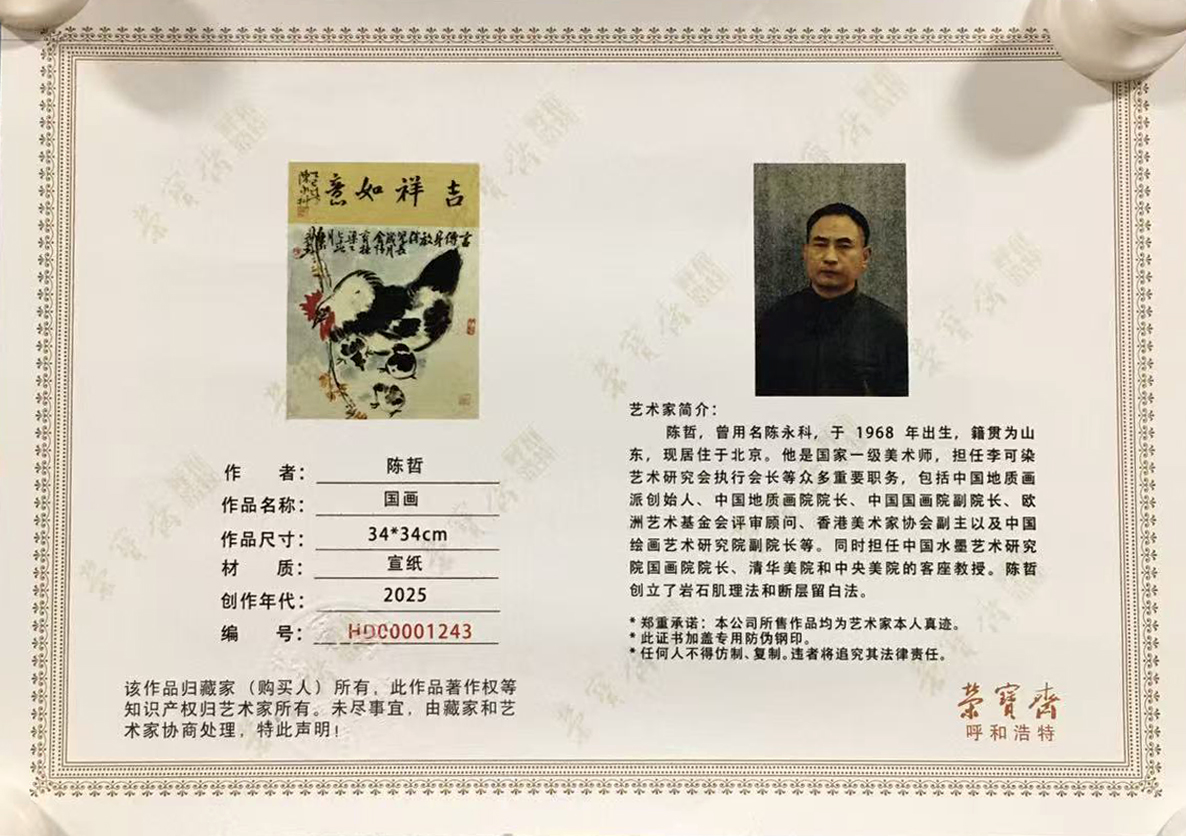 吉祥如意
作者：陈哲
作品名称：国画
作品尺寸：34*34cm
材质：宣纸
创作年代：2025
编号：HD00001243
该作品归藏家（购买人）所有，此作品著作权等
知识产权归艺术家所有。未尽事宜，由藏家和艺
术家协商处理，特此声明！
艺术家简介：
陈哲，曾用名陈永科，于 1968 年出生，籍贯为山
东，现居住于北京。他是国家一级美术师，担任李可染
艺术研究会执行会长等众多重要职务，包括中国地质画
派创始人、中国地质画院院长、中国国画院副院长、欧
洲艺术基金会评审顾问、香港美术家协会副主以及中国
绘画艺术研究院副院长等。同时担任中国水墨艺术研究
院国画院院长、清华美院和中央美院的客座教授。陈哲
创立了岩石肌理法和断层留白法。
*郑重承诺：本公司所售作品均为艺术家本人真迹。
*此证书加盖专用防伪钢印。
*任何人不得仿制、复制。违者将追究其法律责任。
荣宝斋
呼和浩特